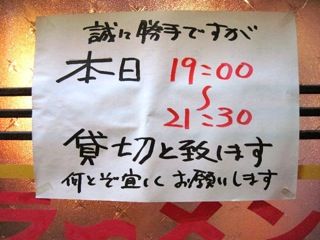 誠に勝手ですが
本日 19:00
〜
21:30
貸切と致します
何とぞ宜しくお願いします
ラーメン